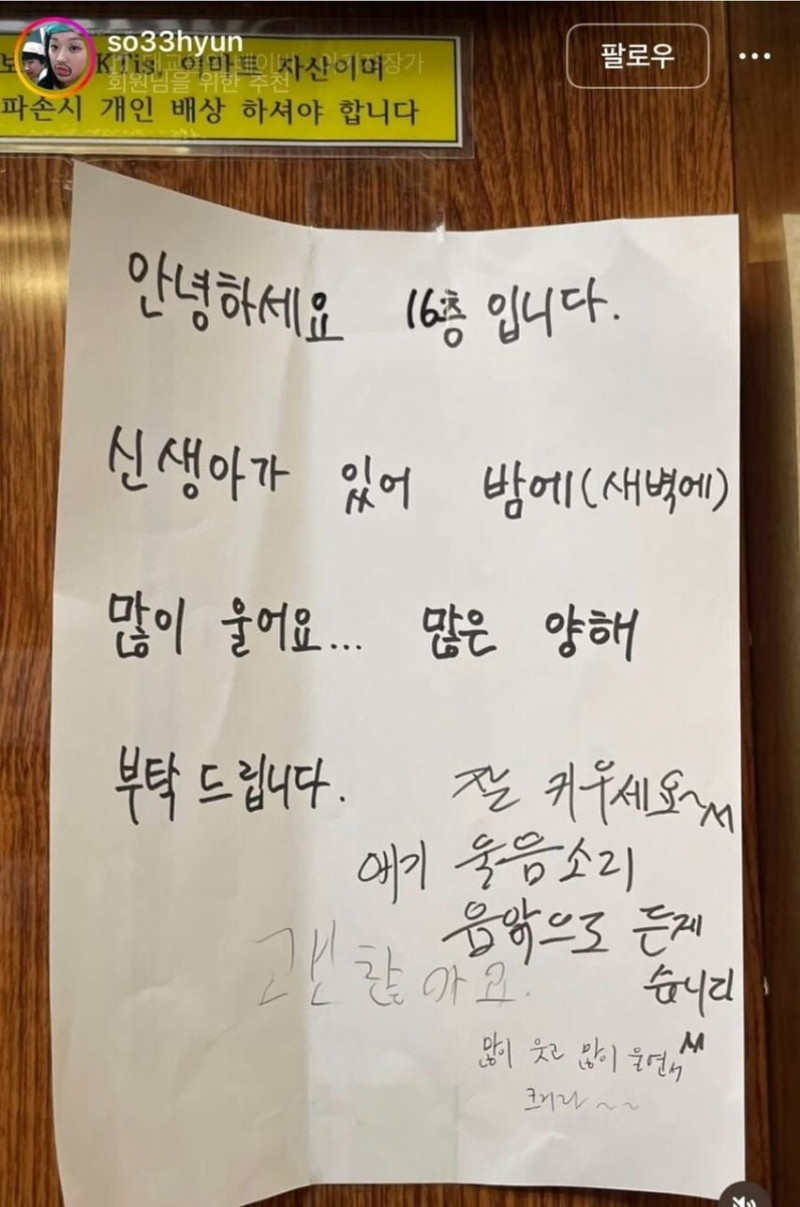 so33hyun
팔로우
회원님을 위한 추천
자산이며
파손시 개인 배상 하셔야 합니다
안녕하세요 16층 입니다.
신생아가 있어 밤에(새벽에)
많이 울어요... 많은 양해
부탁 드립니다.
잘 키우세요~
애기 울음소리
음악으로 듣제
습니다
괜찮아요.
많이 웃고 많이 울면서
크거라~~